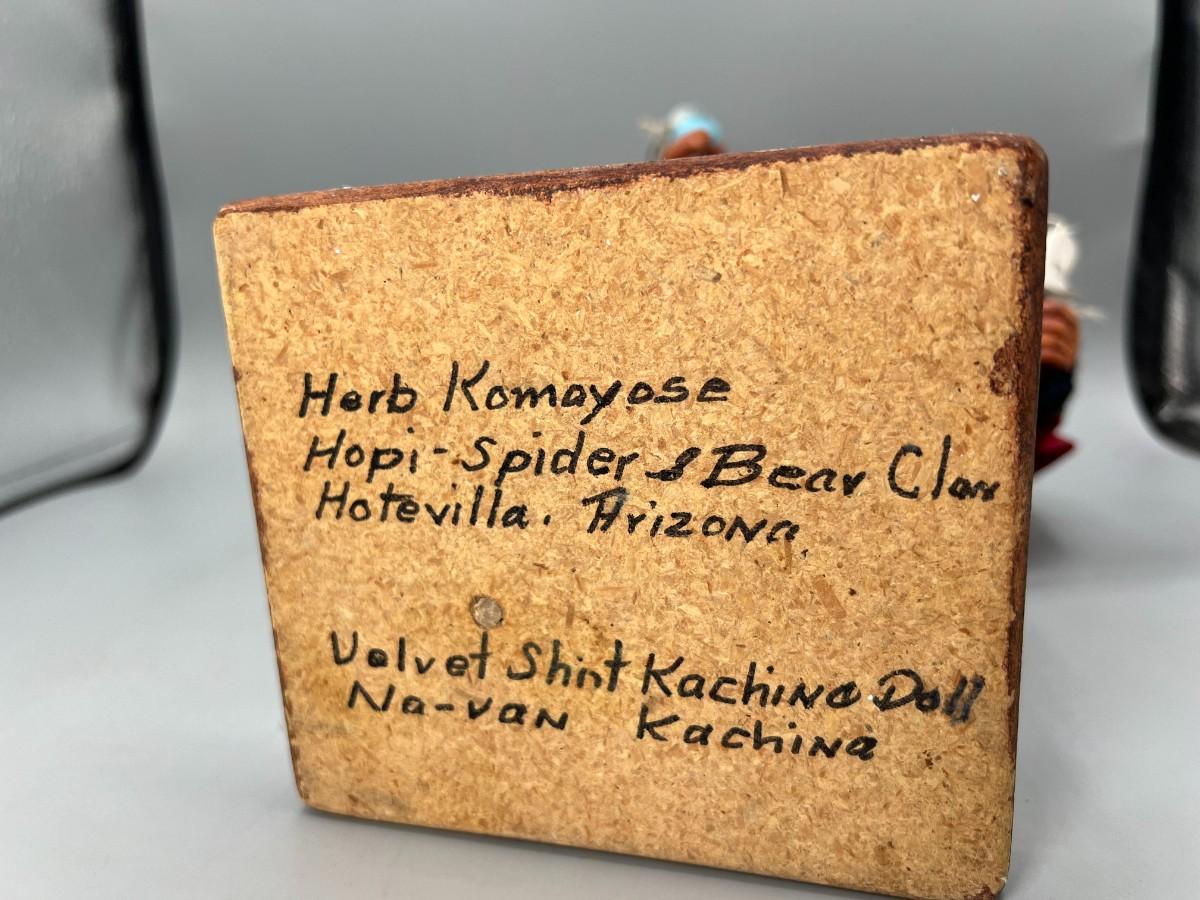 Herb Komayose
Hopi - Spider & Bear Clan
Hotevilla. Arizona.
Velvet Shirt Kachina Doll
Na-van Kachina